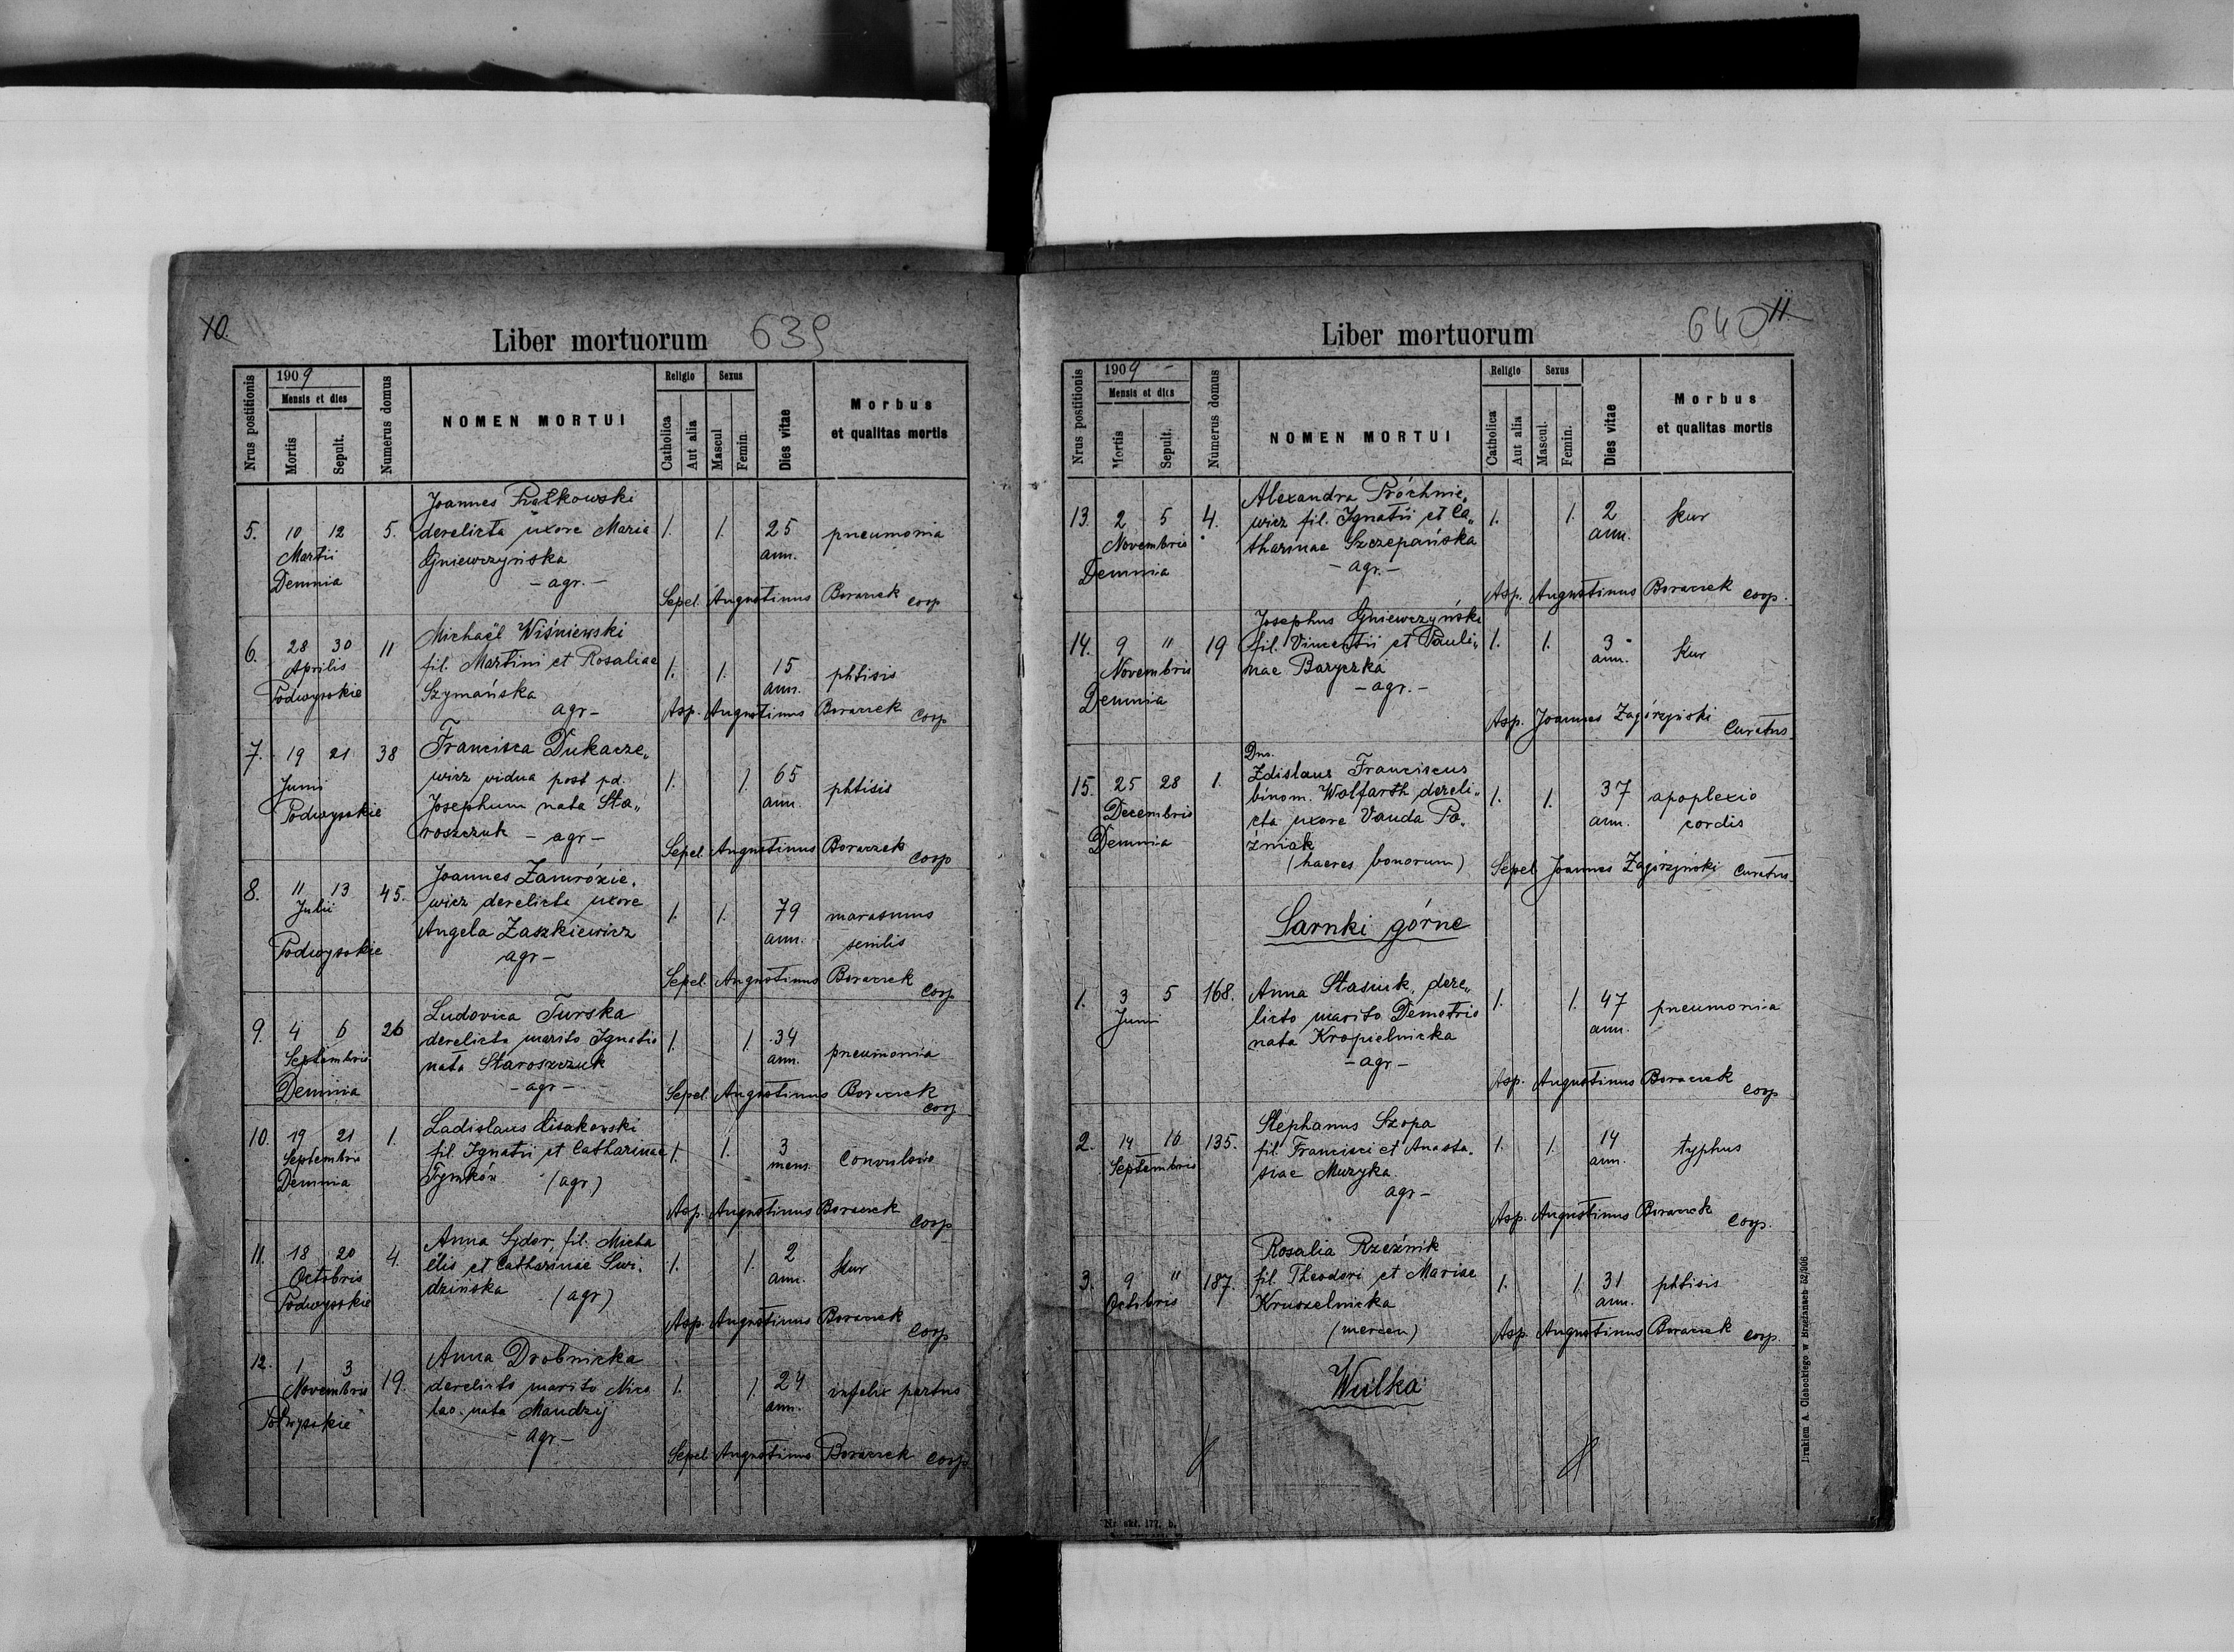 10.
Liber mortuorum 639
Nrus postitionis
1909
Mensis et dies
Mortis
Sepult.
Numerus domus
NOMEN MORTUI
Religio
Catholica
Aut alia
Sexus
Mascul
Femin.
Dies vitae
Morbus
et qualitas mortis
Joannes
5. 10 12 5. derelicta uxore Maria 1. 1. 25 pneumonia
Martii Gniewczyńska ann.
Demnia - agr. -
Sepel. Augustinus Boraczek coop
Michaël Wiśniewski
6. 28 30 11 fil. Martini et Rosaliae 1. 1. 15 phtisis
Aprilis Szymańska ann.
Podwysokie agr -
Asp. Augustinus Boraczek Coop
Francisca Dukacze„
7. 19 21 38 wicz vidua post pd. 1. 1. 65 phtisis
Junii Josephum nata Sta„ ann.
Podwysokie roszczuk - agr -
Sepel. Augustinus Boraczek Coop
Joannes Zamrózie„
8. 11 13 45. wicz derelicta uxore 1. 1. 79 marasmus
Julii Angela Zaszkiewicz ann. senilis
Podwysokie agr -
Sepel. Augustinus Boraczek Coop
Ludovica Turska
9. 4 6 26 derelicto marito Ignatio 1. 1. 34 pneumonia
Septembris nata Staroszczuk ann.
Demnia - agr -
Sepel. Augustinus Boraczek coop
Ladislaus Lisakowski
10. 19 21 1. fil. Ignatii et Catharinae 1. 1. 3 Convulsio
Septembris Tymków (agr) mens.
Demnia
Asp. Augustinus Boraczek Coop
Anna Syder, fil. Micha
11. 18 20 4. ëlis et Catharinae 1. 1. 2 kur
Octobris (agr) ann.
Podwysokie
Asp. Augustinus Boraczek Coop
Anna Drobnicka
12. 1 3 19. derelicto marito Nico 1. 1. 24 infelix partus
Novembris lao nata Mandzij ann.
Podwysokie - agr -
Sepel Augustinus Boraczek Coop.
Liber mortuorum 640 11.
Nrus postitionis
1909
Mensis et dies
Mortis
Sepult.
Numerus domus
NOMEN MORTUI
Religio
Catholica
Aut alia
Sexus
Mascul.
Femin.
Dies vitae
Morbus
et qualitas mortis
Alexandra Próchnie„
13. 2 5 4. wicz fil. Ignatii et Ca„ 1. 1. 2 kur
Novembris tharinae Szczepańska ann.
Demnia - agr. -
Asp. Augustinus Boraczek coop.
Josephus Gniewczyński
14. 9 " 19 fil. Vincentii et Pauli„ 1. 1. 3 kur
Novembris nae Baryczka ann.
Demnia - agr. -
Asp. Joannes Zagórzyński Curatus
Dns.
Zdislaus Franciscus
15. 25 28 1. binom. Wolfarth, dereli„ 1. 1. 37 apoplexio
Decembris cta uxore Vanda Po„ ann. cordis
Demnia źniak
(haeres bonorum) Sepel Joannes Zagórzyński Curatus
Sarnki górne
1. 3 5 168. Anna Stasiuk, dere„ 1. 1. 47 pneumonia
Junii licto marito Demetrio ann.
nata Kropielnicka
- agr -
Asp. Augustinus Boraczek coop
Stephanus Szopa
2. 14 16 135. fil. Francisci et Anasta„ 1. 1. 14 typhus
Septembris siae Muzyka ann.
agr -
Asp. Augustinus Boraczek Coop.
Rosalia Rzeźnik
3. 9 " 187. fil. Theodori et Mariae 1. 1. 31 phtisis
Octobris Kruszelnicka ann.
(mercen) Asp. Augustinus Boraczek coop.
Wulka
Nr. skł. 177. b.
Drukiem A. Głebockiego w Brzeżanach 52/906